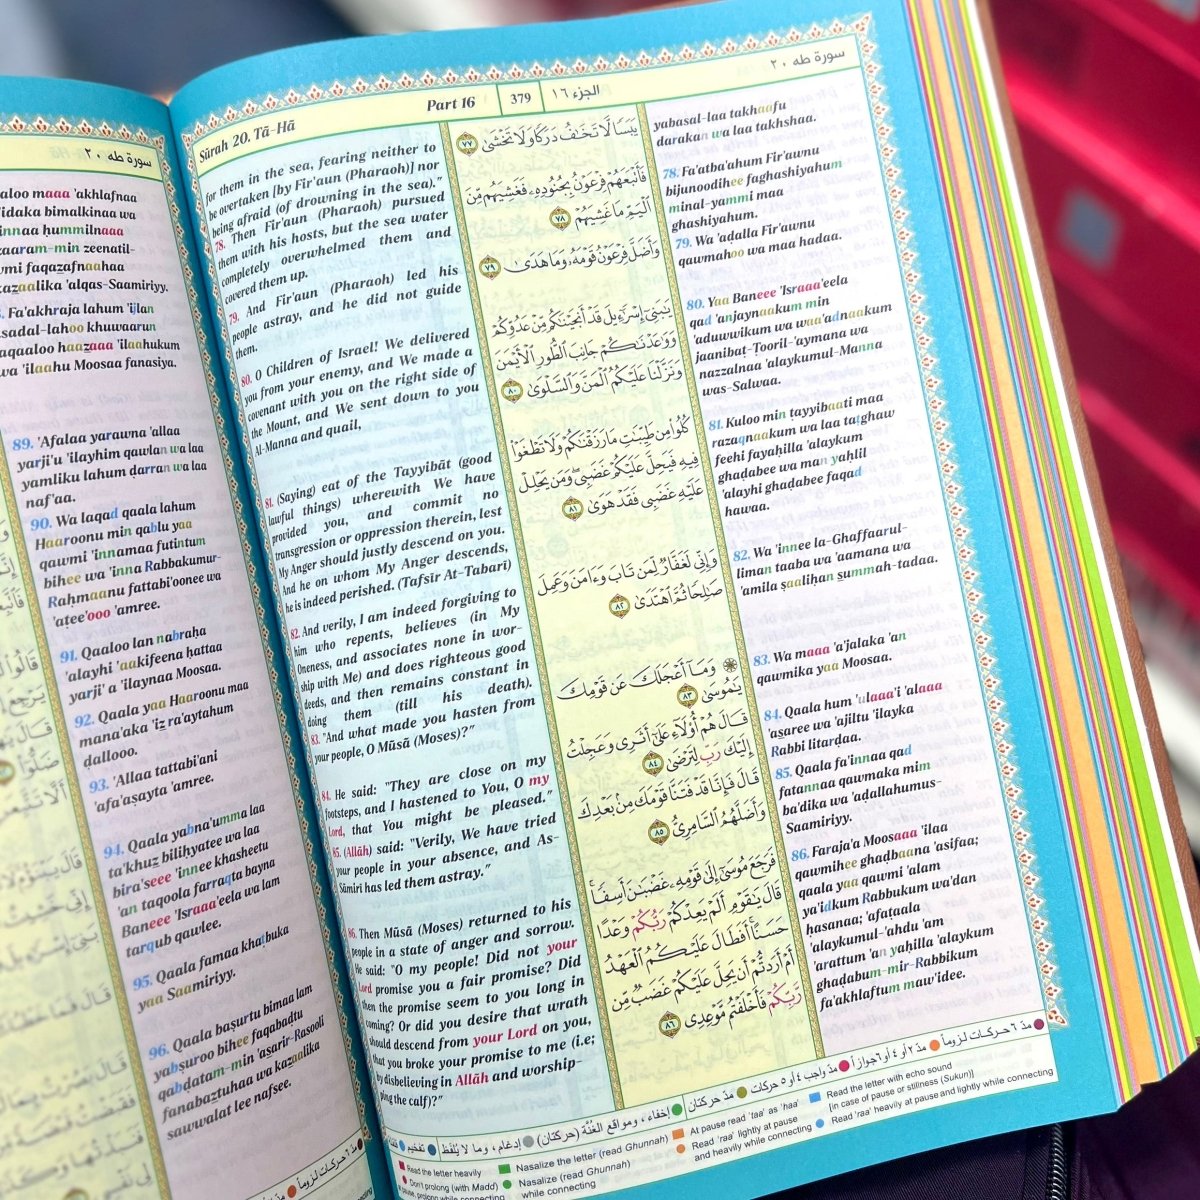 سورة طه ٢٠
aloo maaa 'akhlafnaa
'idaka bimalkinaa wa
innaa ḥummilnaaa
zaaram-min zeenatil-
wmi faqaẕafnaahaa
kaẕaalika 'alqas-Saamiriyy.
Fa'akhraja lahum 'ijlan
sadal-lahoo khuwaarun
aqaaloo haaẕaaa 'ilaahukum
wa 'ilaahu Moosaa fanasiya.
89. 'Afalaa yarawna 'allaa
yarji'u 'ilayhim qawlan wa laa
yamliku lahum ḍarran wa laa
naf'aa.
90. Wa laqad qaala lahum
Haaroonu min qablu yaa
qawmi 'innamaa futintum
bihee wa 'inna Rabbakumur-
Raḥmaanu fattabi'oonee wa
'aṭee'ooo 'amree.
91. Qaaloo lan nabraḥa
'alayhi 'aakifeena ḥattaa
yarji' a 'ilaynaa Moosaa.
92. Qaala yaa Haaroonu maa
mana'aka 'iẕ ra'aytahum
ḍallooo.
93. 'Allaa tattabi'ani
'afa'aṣayta 'amree.
94. Qaala yabna'umma laa
ta'khuẕ bilihyatee wa laa
bira'seee 'innee khasheetu
'an taqoola farraqta bayna
Baneee 'Israaa'eela wa lam
tarqub qawlee.
95. Qaala famaa khaṭbuka
yaa Saamiriyy.
96. Qaala baṣurtu bimaa lam
yabṣuroo bihee faqabaḍtu
qabḍatam-min 'aṣarir-Rasooli
fanabaẕtuhaa wa kaẕaalika
sawwalat lee nafsee.
Sūrah 20. Tā-Hā
Part 16
379
الجزء ١٦
سورة طه ٢٠
for them in the sea, fearing neither to
be overtaken [by Fir'aun (Pharaoh)] nor
being afraid (of drowning in the sea)."
78. Then Fir'aun (Pharaoh) pursued
them with his hosts, but the sea water
completely overwhelmed them and
covered them up.
79. And Fir'aun (Pharaoh) led his
people astray, and he did not guide
them.
80. O Children of Israel! We delivered
you from your enemy, and We made a
covenant with you on the right side of
the Mount, and We sent down to you
Al-Manna and quail,
81. (Saying) eat of the Tayyibāt (good
lawful things) wherewith We have
provided you, and commit no
transgression or oppression therein, lest
My Anger should justly descend on you.
And he on whom My Anger descends,
he is indeed perished. (Tafsīr At-Tabarī)
82. And verily, I am indeed forgiving to
him who repents, believes (in My
Oneness, and associates none in wor-
ship with Me) and does righteous good
deeds, and then remains constant in
doing them (till his death).
83. "And what made you hasten from
your people, O Mūsā (Moses)?"
84. He said: "They are close on my
footsteps, and I hastened to You, O my
Lord, that You might be pleased."
85. (Allāh) said: "Verily, We have tried
your people in your absence, and As-
Sāmiri has led them astray."
86. Then Mūsā (Moses) returned to his
people in a state of anger and sorrow.
He said: "O my people! Did not your
Lord promise you a fair promise? Did
then the promise seem to you long in
coming? Or did you desire that wrath
should descend from your Lord on you,
that you broke your promise to me (i.e;
by disbelieving in Allāh and worship-
ping the calf)?"
يَبَسًا لَّا تَخَٰفُ دَرَكًا وَلَا تَخْشَىٰ ٧٧
فَأَتْبَعَهُمْ فِرْعَوْنُ بِجُنُودِهِۦ فَغَشِيَهُم مِّنَ
ٱلْيَمِّ مَا غَشِيَهُمْ ٧٨
وَأَضَلَّ فِرْعَوْنُ قَوْمَهُۥ وَمَا هَدَىٰ ٧٩
يَٰبَنِىٓ إِسْرَٰٓءِيلَ قَدْ أَنجَيْنَٰكُم مِّنْ عَدُوِّكُمْ
وَوَٰعَدْنَٰكُمْ جَانِبَ ٱلطُّورِ ٱلْأَيْمَنَ
وَنَزَّلْنَا عَلَيْكُمُ ٱلْمَنَّ وَٱلسَّلْوَىٰ ٨٠
كُلُوا۟ مِن طَيِّبَٰتِ مَا رَزَقْنَٰكُمْ وَلَا تَطْغَوْا۟
فِيهِ فَيَحِلَّ عَلَيْكُمْ غَضَبِى وَمَن يَحْلِلْ
عَلَيْهِ غَضَبِى فَقَدْ هَوَىٰ ٨١
وَإِنِّى لَغَفَّارٌ لِّمَن تَابَ وَءَامَنَ وَعَمِلَ
صَٰلِحًا ثُمَّ ٱهْتَدَىٰ ٨٢
۞ وَمَآ أَعْجَلَكَ عَن قَوْمِكَ
يَٰمُوسَىٰ ٨٣
قَالَ هُمْ أُو۟لَآءِ عَلَىٰٓ أَثَرِى وَعَجِلْتُ
إِلَيْكَ رَبِّ لِتَرْضَىٰ ٨٤
قَالَ فَإِنَّا قَدْ فَتَنَّا قَوْمَكَ مِنۢ بَعْدِكَ
وَأَضَلَّهُمُ ٱلسَّامِرِىُّ ٨٥
فَرَجَعَ مُوسَىٰٓ إِلَىٰ قَوْمِهِۦ غَضْبَٰنَ أَسِفًا
قَالَ يَٰقَوْمِ أَلَمْ يَعِدْكُمْ رَبُّكُمْ وَعْدًا
حَسَنًا أَفَطَالَ عَلَيْكُمُ ٱلْعَهْدُ
أَمْ أَرَدتُّمْ أَن يَحِلَّ عَلَيْكُمْ غَضَبٌ مِّن
رَّبِّكُمْ فَأَخْلَفْتُم مَّوْعِدِى ٨٦
yabasal-laa takhaafu
darakan wa laa takhshaa.
78. Fa'atba'ahum Fir'awnu
bijunoodihee faghashiyahum
minal-yammi maa
ghashiyahum.
79. Wa 'aḍalla Fir'awnu
qawmahoo wa maa hadaa.
80. Yaa Baneee 'Israaa'eela
qad 'anjaynaakum min
'aduwwikum wa waa'adnaakum
jaanibaṭ-Ṭooril-'aymana wa
nazzalnaa 'alaykumul-Manna
was-Salwaa.
81. Kuloo min tayyibaati maa
razaqnaakum wa laa taṭghaw
feehi fayaḥilla 'alaykum
ghaḍabee wa man yaḥlil
'alayhi ghaḍabee faqad
hawaa.
82. Wa 'innee la-Ghaffaarul-
liman taaba wa 'aamana wa
'amila ṣaaliḥan ṣummah-tadaa.
83. Wa maaa 'a'jalaka 'an
qawmika yaa Moosaa.
84. Qaala hum 'ulaaa'i 'alaaa
'aṣaree wa 'ajiltu 'ilayka
Rabbi litarḍaa.
85. Qaala fa'innaa qad
fatannaa qawmaka mim
ba'dika wa 'aḍallahumus-
Saamiriyy.
86. Faraja'a Moosaaa 'ilaa
qawmihee ghaḍbaana 'asifaa;
qaala yaa qawmi 'alam
ya'idkum Rabbukum wa'dan
ḥasanaa; 'afaṭaala
'alaykumul-'ahdu 'am
'arattum 'an yaḥilla 'alaykum
ghaḍabum-mir-Rabbikum
fa'akhlaftum maw'idee.
مدّ ٦ حركات لزوماً مدّ ٢ أو ٤ أو ٦ جوازاً مدّ واجب ٤ أو ٥ حركات مدّ حركتان إخفاء، ومواقع الغُنَّة (حركتان) إدغام، وما لا يُلفَظ تفخيم
Read the letter heavily
Don't prolong (with Madd)
Nasalize the letter (read Ghunnah)
Nasalize (read Ghunnah)
while connecting
At pause read 'taa' as 'haa'
Read 'raa' lightly at pause
and heavily while connecting
Read the letter with echo sound
[in case of pause or stillness (Sukun)]
Read 'raa' heavily at pause and lightly while connecting